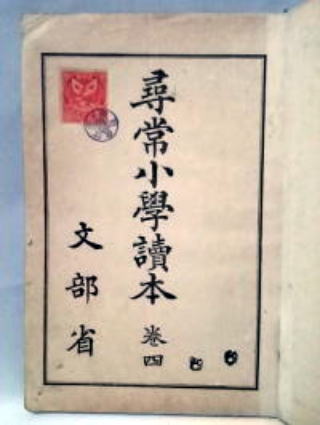 尋常小學讀本
卷四
文部省